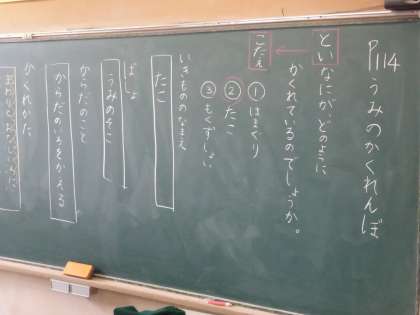 P114 うみのかくれんぼ
とい なにが、どのように
かくれているのでしょうか。
こたえ
① はまぐり
② たこ
③ もくずしょい
いきもののなまえ
たこ
ばしょ
うみのそこ
からだのこと
からだのいろをかえる
かくれかた